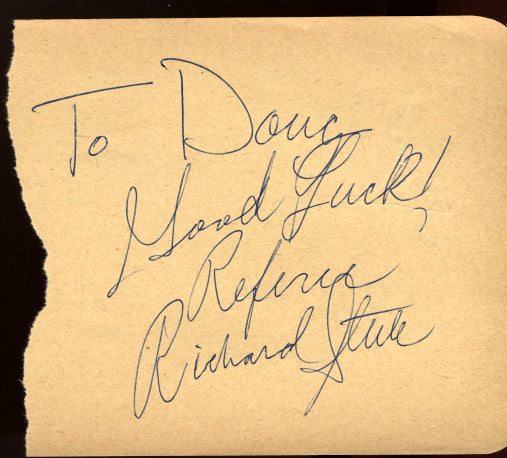 To Doug
Good Luck!
Referee
Richard Steele